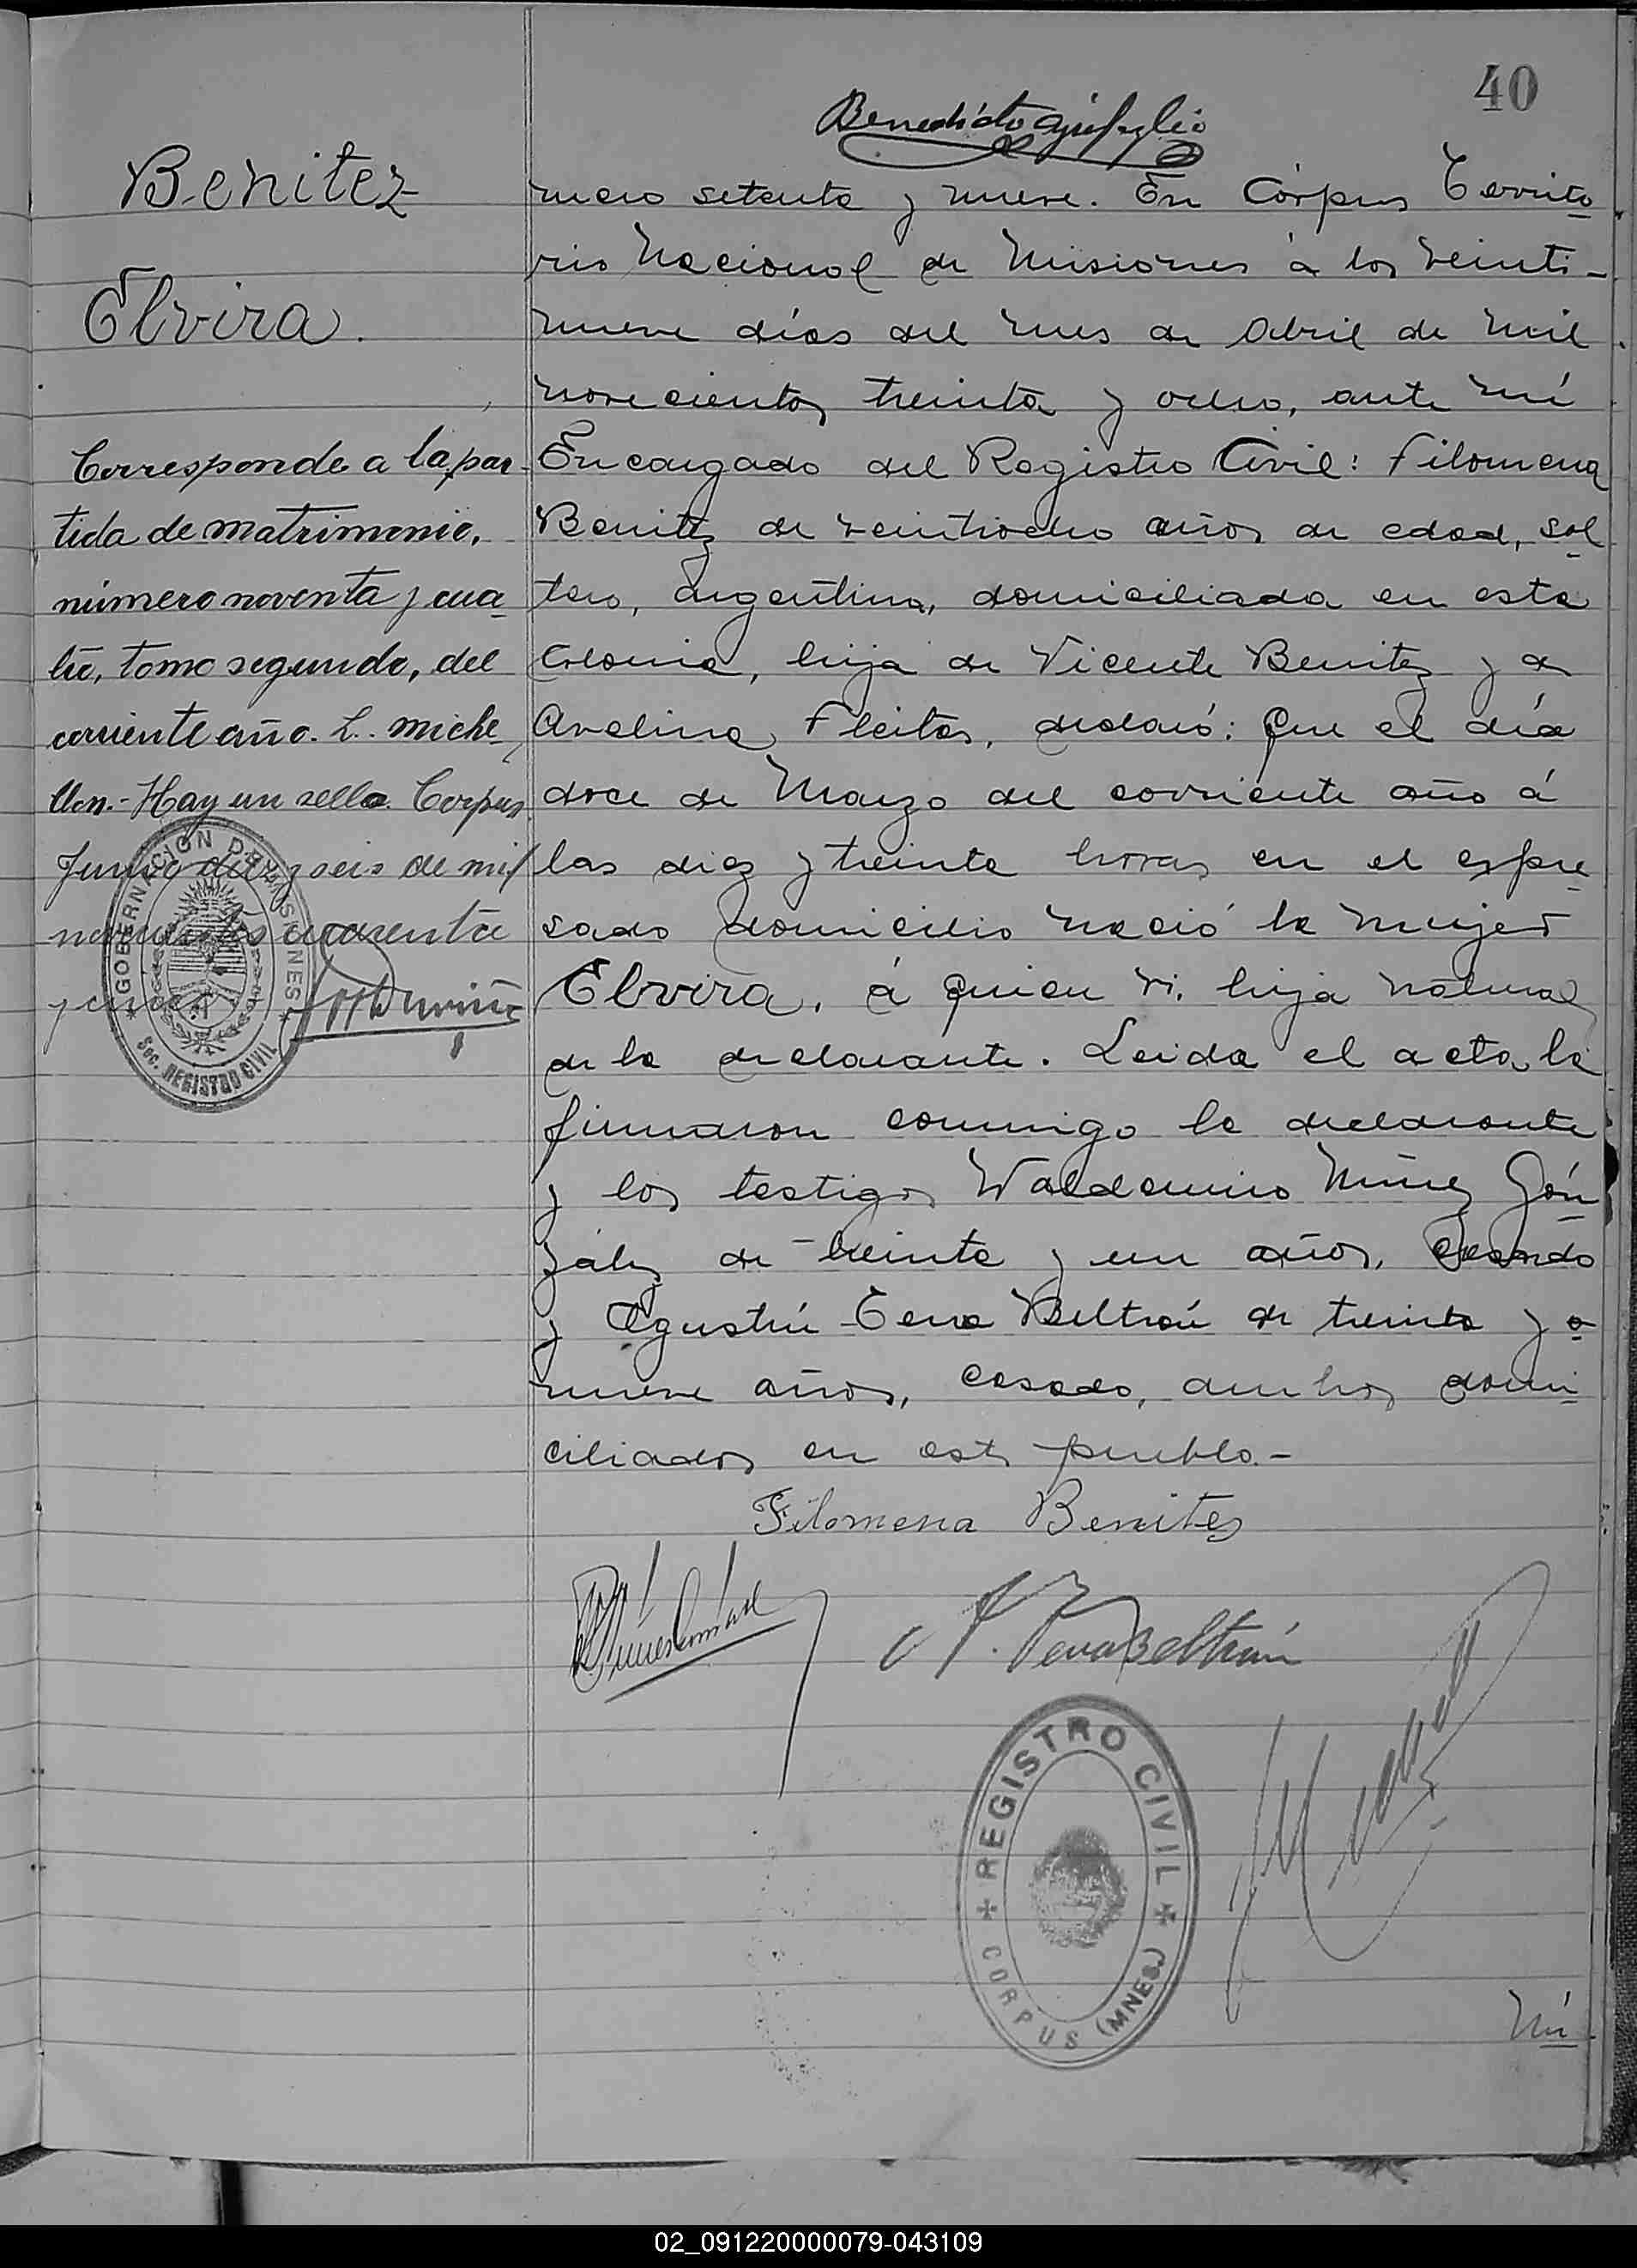 40
Benedicto
Benitez
Elvira.
Corresponde a la par-
tida de matrimonio,
número noventa y cua-
tro, tomo segundo, del
corriente año. L. Miche
llon.- Hay un sello. Corpus
Junio diez y seis de mil
novecientos cuarenta
y cinco
GOBERNACION DE MISIONES
Sec. REGISTRO CIVIL
mero setenta y nueve. En Córpus Territo
rio Nacional de Misiones á los veinti-
nueve días del mes de Abril de mil
novecientos treinta y ocho, ante mí
Encargado del Registro Civil: Filomena
Benitez de veintiocho años de edad, sol
tera, argentina, domiciliada en esta
Colonia, hija de Vicente Benitez y de
Avelina Fleitas, declaró: Que el día
doce de Marzo del corriente año á
las diez y treinta horas en el espre
sado domicilio nació la mujer
Elvira, á quien vi, hija natural
de la declarante. Leida el acta la
firmaron conmigo la declarante
y los testigos Waldemiro Núñez Gón
zález de treinta y un años, casado
y Agustín Tena Beltrán de treinta y
nueve años, casado, ambos domi
ciliados en este pueblo.-
Filomena Benites
A. Tena Beltrán
REGISTRO CIVIL
CORPUS (MNES.)
Nú
02_091220000079-043109